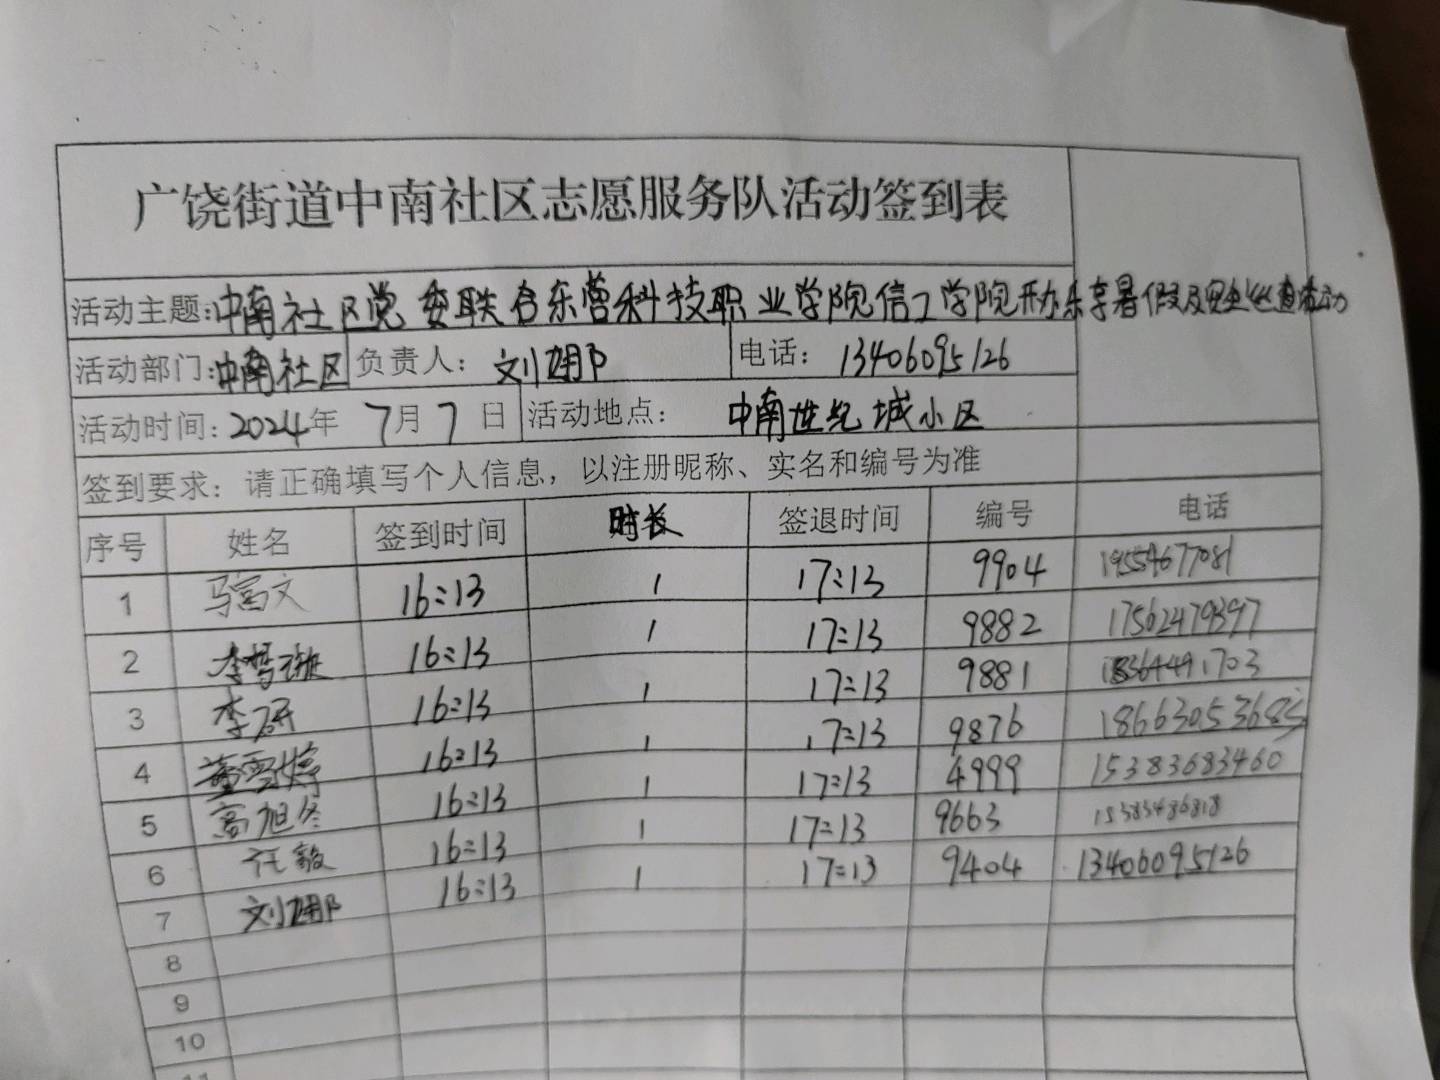 广饶街道中南社区志愿服务队活动签到表
活动主题:中南社区党委联合东营科技职业学院信工学院开办乐享暑假及安全
活动部门:中南社区 负责人: 刘娜 电话: 13406095126
活动时间: 2024年 7月 7 日 活动地点: 中南世纪城小区
签到要求: 请正确填写个人信息, 以注册昵称、实名和编号为准
序号 姓名 签到时间 时长 签退时间 编号 电话
1 马富文 16:13 1 17:13 9904 19554677081
2 李梦璇 16:13 1 17:13 9882 17562479397
3 李妍 16:13 1 17:13 9881 18364491703
4 董雪婷 16:13 1 17:13 9876 18663053685
5 高旭冬 16:13 1 17:13 4999 15383683460
6 任毅 16:13 1 17:13 9663
7 刘娜 16:13 1 17:13 9404 13406095126
8
9
10
11